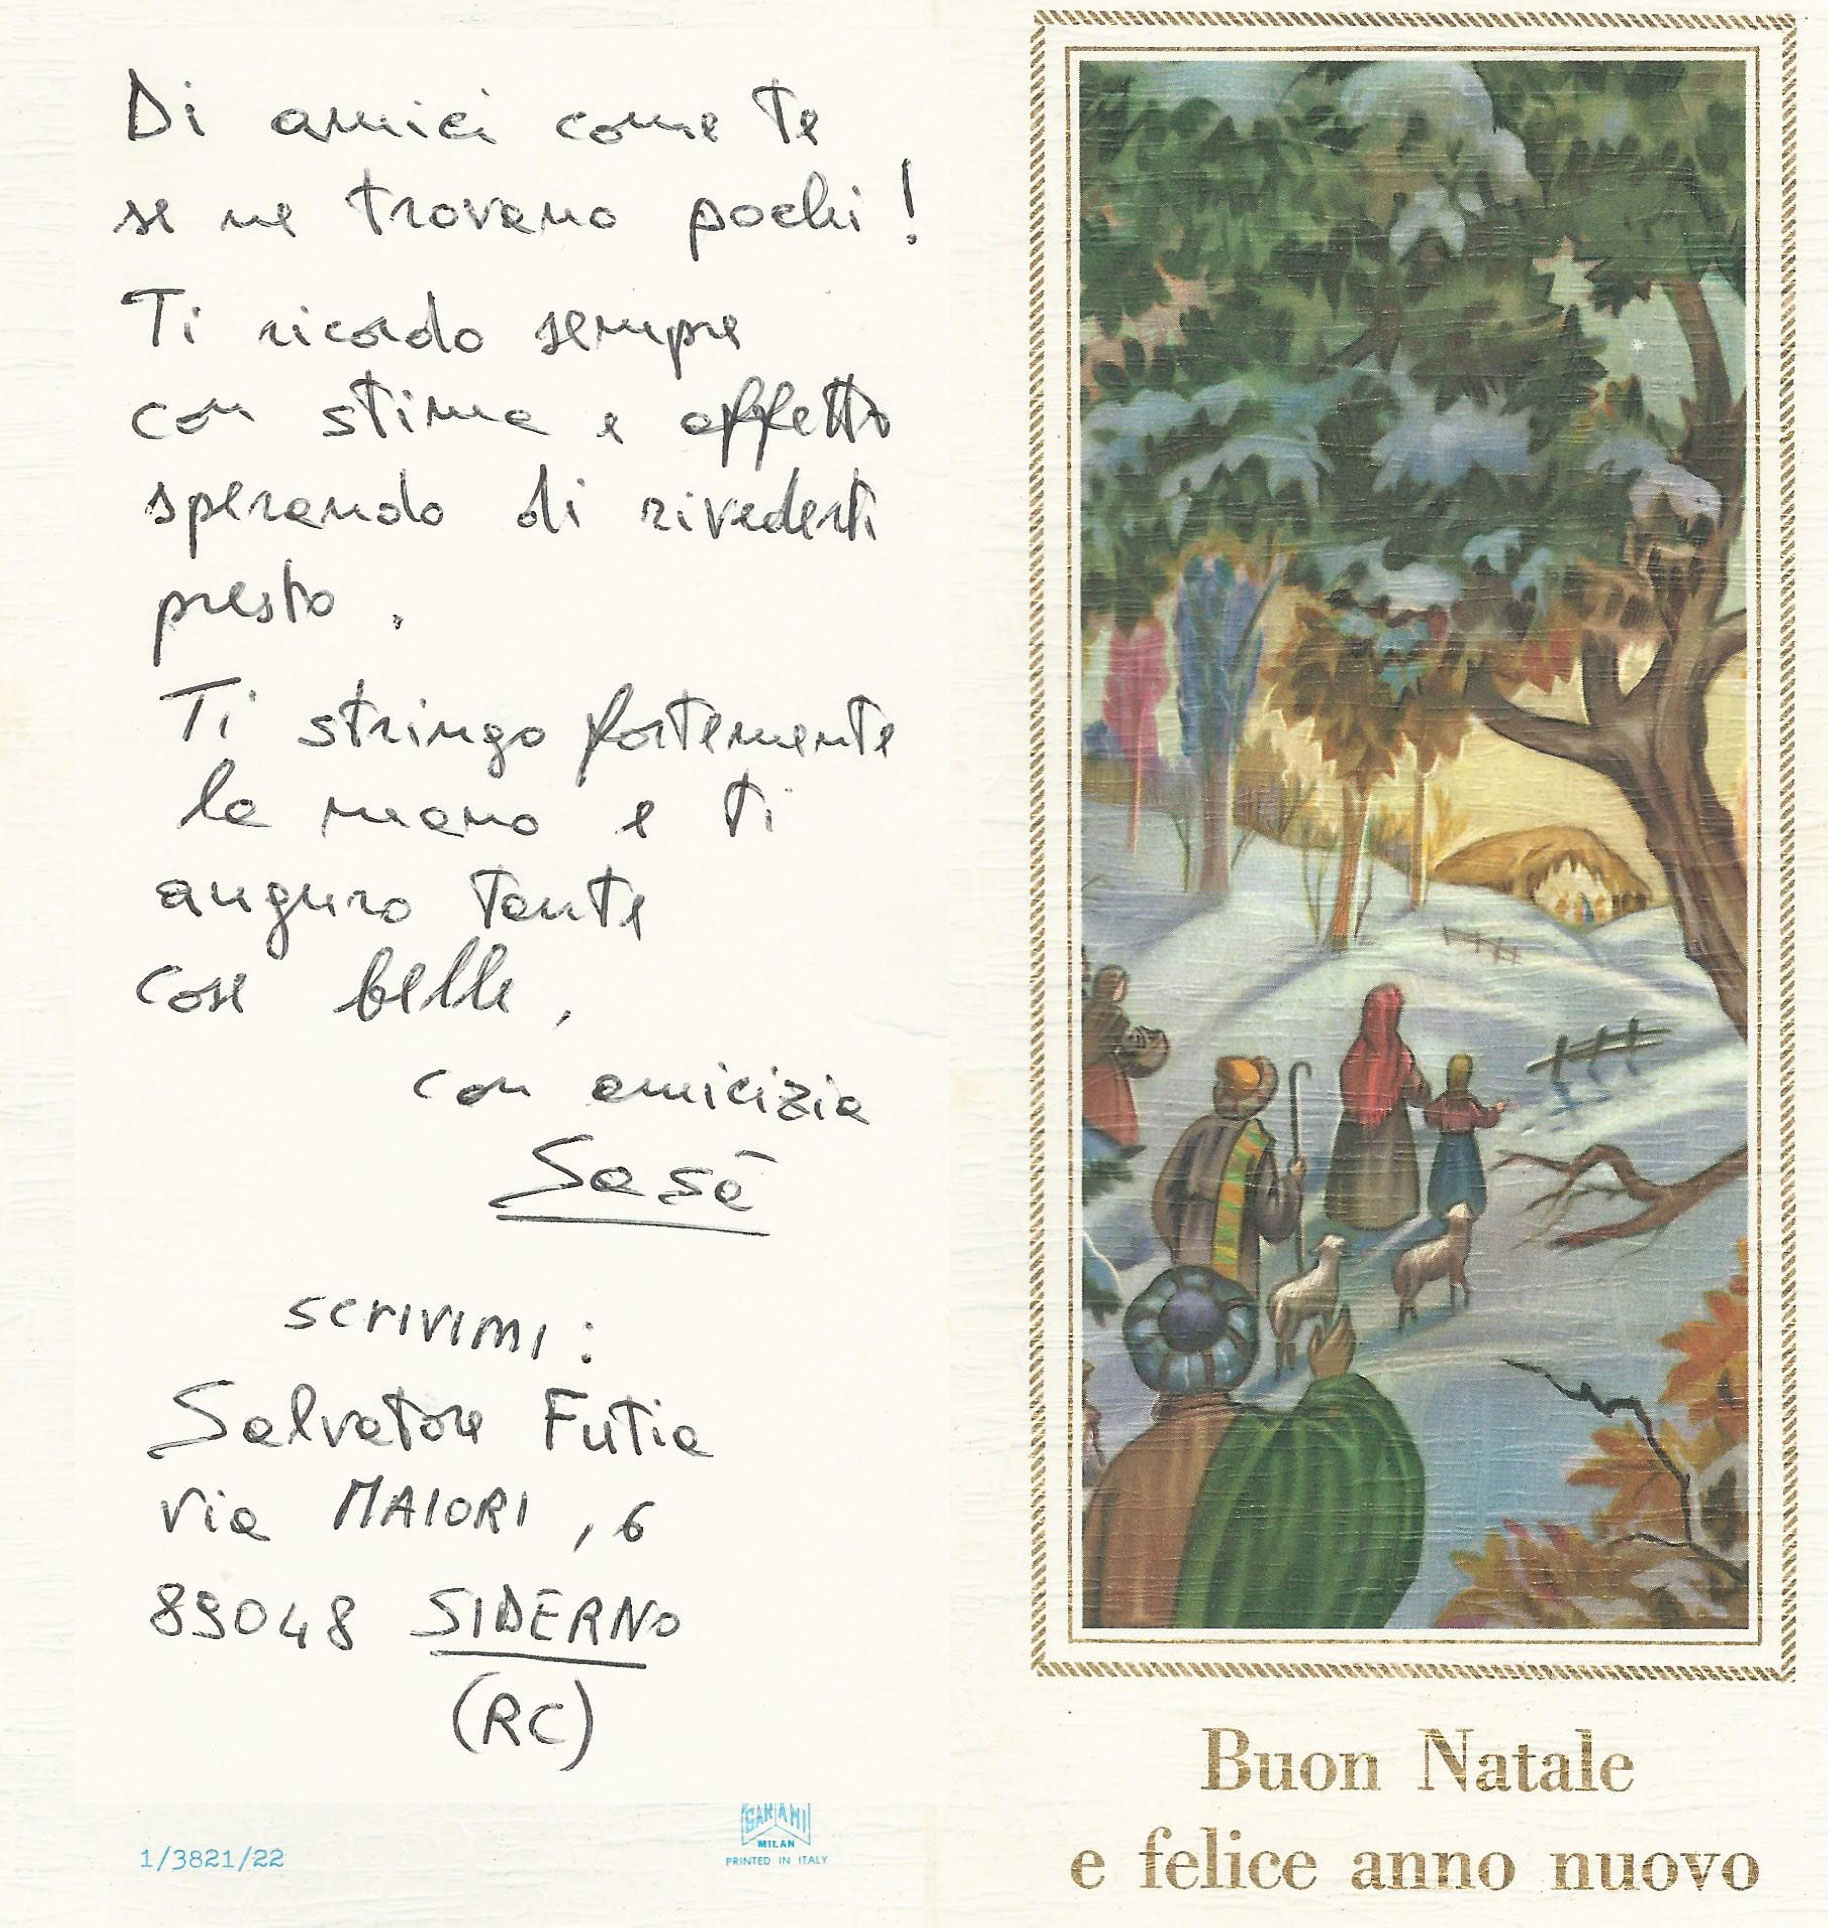 Di amici come te
se ne trovano pochi!
Ti ricordo sempre
con stima e affetto
sperando di rivederti
presto.
Ti stringo fortemente
la mano e ti
auguro tante
cose belle,
con amicizia
Sasà
scrivimi:
Salvatore Futia
via MAIORI, 6
89048 SIDERNO
(RC)
1/3821/22
MILAN
PRINTED IN ITALY
Buon Natale
e felice anno nuovo